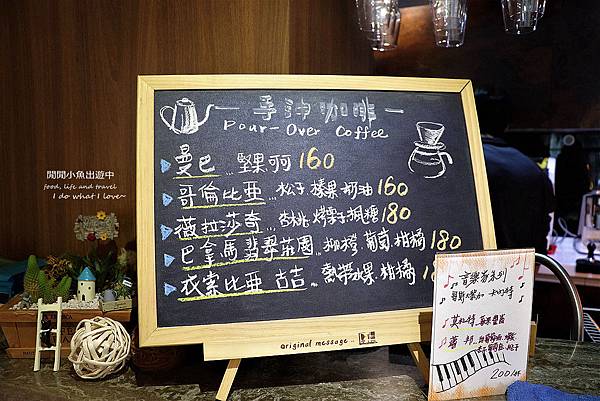 閒閒小魚出遊中
food, life and travel
I do what I love~
手沖咖啡
Pour-Over Coffee
曼巴...堅果 可可 160
哥倫比亞...松子 榛果 奶油 160
薇拉莎奇...杏桃 烤栗子 楓糖 180
巴拿馬 翡翠莊園...柳橙 葡萄 柑橘 180
衣索比亞 古吉...熱帶水果 柑橘 18
original message
音樂家系列
哥斯大黎加 卡內特
莫札特
蕭邦
200/杯